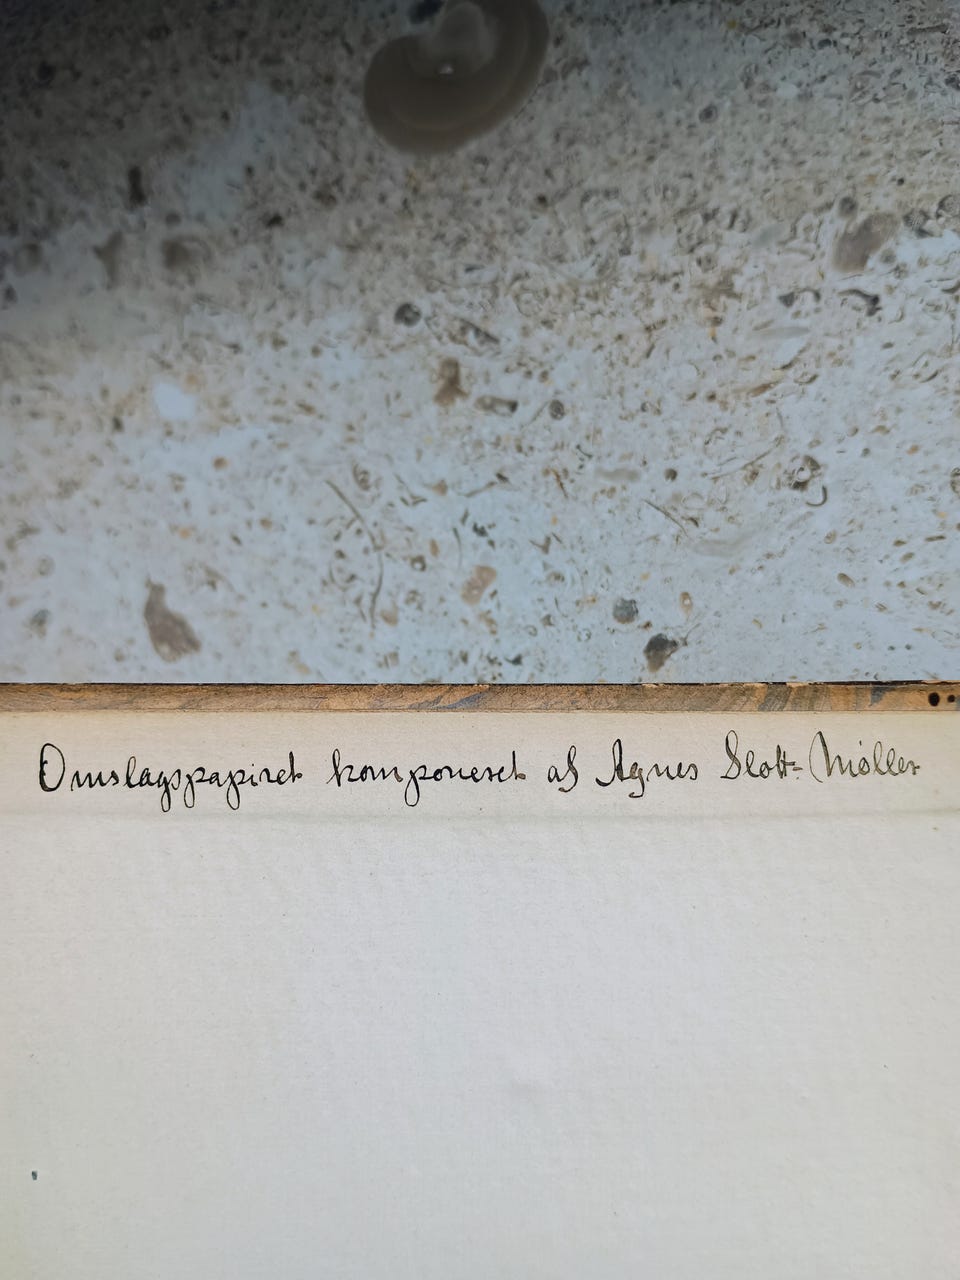 Omslagspapiret komponeret af Agnes Slott-Møller